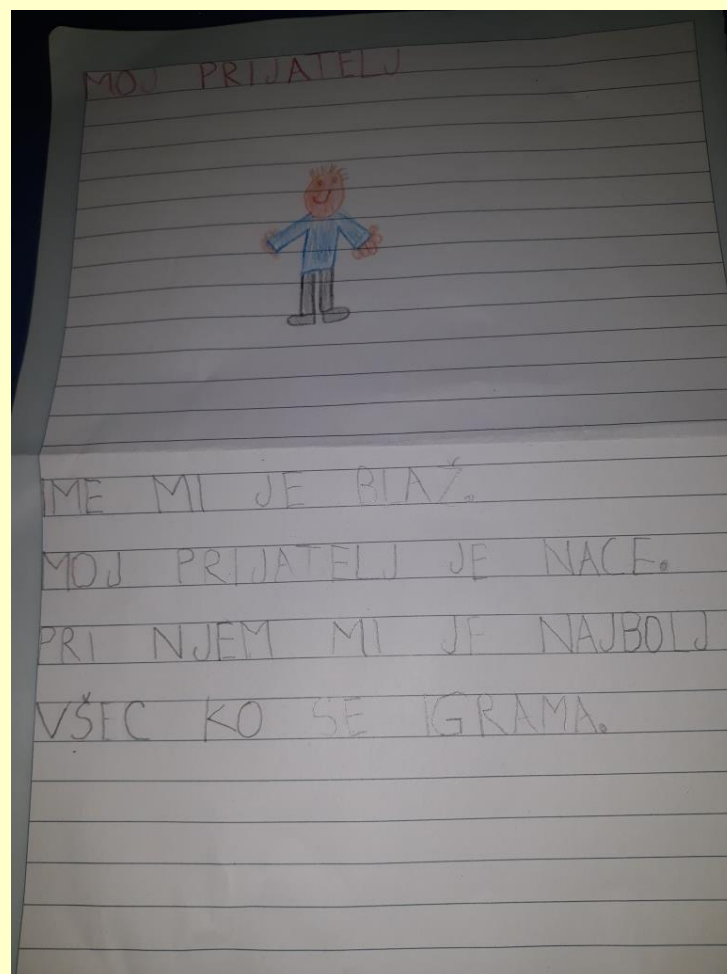 MOJ PRIJATELJ
IME MI JE BLAŽ.
MOJ PRIJATELJ JE NACE.
PRI NJEM MI JE NAJBOLJ
VŠEC KO SE IGRAMA.